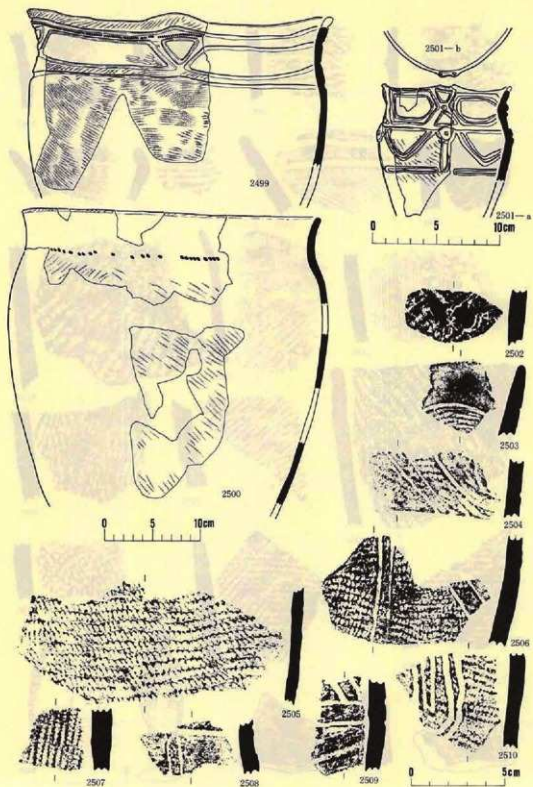 2501—b
2499
2501—a
0 5 10cm
2502
2503
2500
2504
0 5 10cm
2506
2505
2507
2508
2509
2510
0 5cm